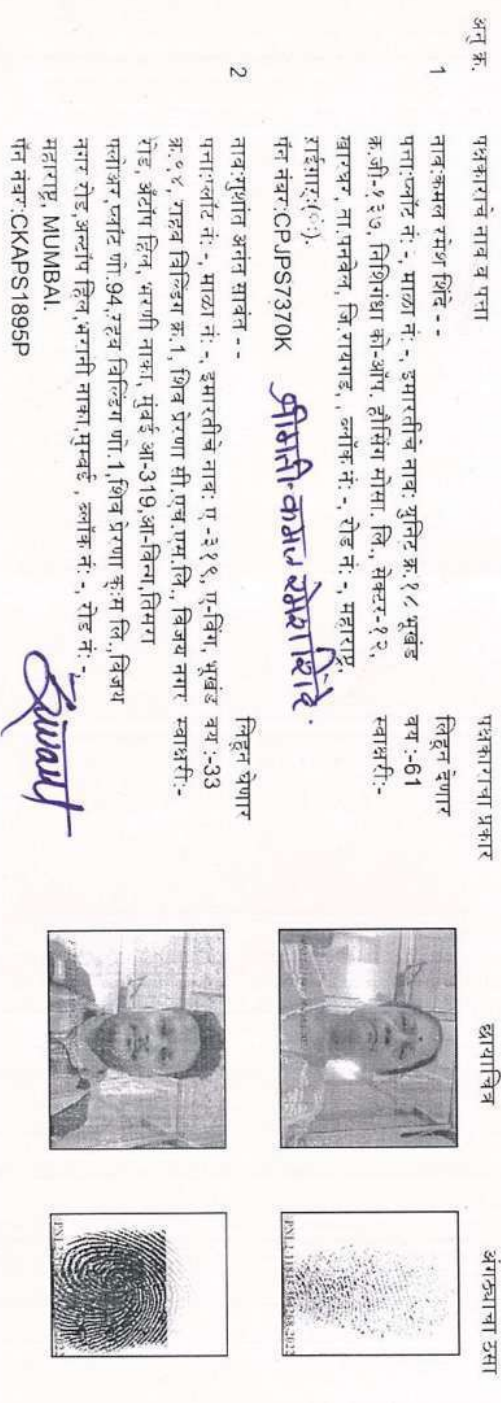 अनु क्र. पक्षकाराचे नाव व पत्ता पक्षकाराचा प्रकार छायाचित्र अंगठ्याचा ठसा
1 नाव:कमल रमेश शिंदे - -
पत्ता:प्लॉट नं: -, माळा नं: -, इमारतीचे नाव: युनिट क्र.१८ भूखंड
क्र.जी-१३७, निशिगंधा को-ऑप. हौसिंग सोसा. लि., सेक्टर-१२,
खारघर, ता.पनवेल, जि.रायगड, , ब्लॉक नं: -, रोड नं: -, महाराष्ट्र,
राईगार्:(ं:).
पॅन नंबर:CPJPS7370K
लिहून देणार
वय :-61
स्वाक्षरी:-
श्रीमती कमल रमेश शिंदे.
2 नाव:सुशांत अनंत सावंत - -
पत्ता:प्लॉट नं: -, माळा नं: -, इमारतीचे नाव: ए -३१९, ए-विंग, भूखंड
क्र.९४, राहत बिल्डिंग क्र.1, शिव प्रेरणा सी.एच.एस.लि., विजय नगर
रोड, अँटॉप हिल, भरणी नाका, मुंबई आ-319,आ-विन्ग,तिसरा
फ्लोअर,प्लॉट णो.94,रहत बिल्डिंग णो.1,शिव प्रेरणा कृ:म लि.,विजय
नगर रोड,अन्टॉप हिल,भरानी नाका,मुम्बई , ब्लॉक नं: -, रोड नं: -,
महाराष्ट्र, MUMBAI.
पॅन नंबर:CKAPS1895P
लिहून घेणार
वय :-33
स्वाक्षरी:-